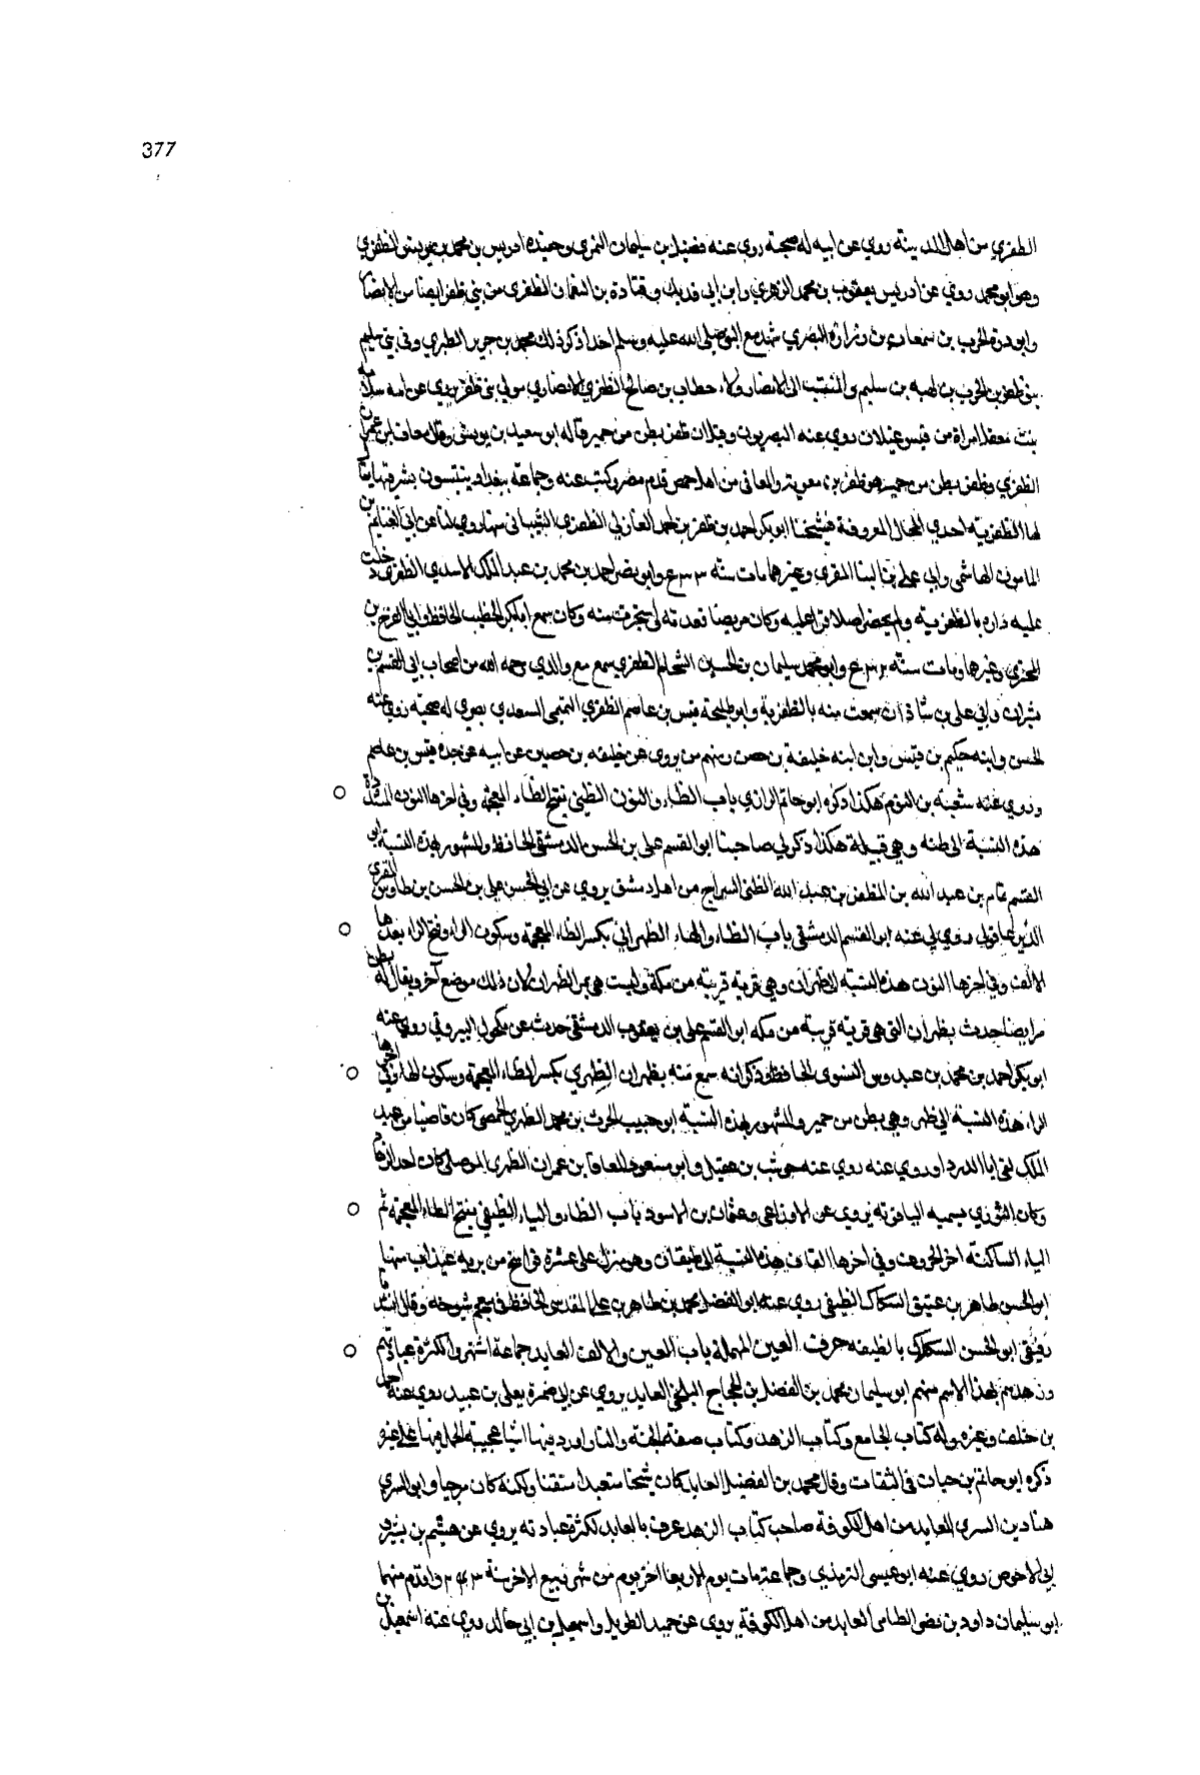 377
الظفري من اهل المدينة روي عن ابيه له صحبة روي عنه فضيل بن سليمان النمري وحفيده ادريس بن محمد بن يونس الظفري
وهو ابو محمد روي عن ادريس يعقوب بن محمد الزهري وابن ابي فديك وقتادة بن النعمان الظفري من بني ظفر ايضا من الانصار
شهد مع النبي صلى الله عليه وسلم احدا ذكر ذلك محمد بن جرير الطبري وفي بني سليم
بنو ظفر بن الحرث بن بهثه بن سليم والمنتسب الى الانصار ولاء خطاب بن صالح الظفري الانصاري مولي بني ظفر يروي عن امه سلامة
بنت معقل امراة من قيس عيلان روي عنه البصريون وقيل ان ظفر بطن من حمير قاله ابو سعيد بن يونس وقال معافى بن عمران
الظفري وظفر بطن من حمير هو ظفر بن معوية والمعافى من اهل حمص قدم مصر وكتب عنه وجماعة ببغداد ينتسبون
لها الظفرية احدي المحال المعروفة فشيخنا ابو بكر احمد بن ظفر بن احمد المغازلي الظفري الشيباني منها روي لنا عن ابي الغنايم بن
المامون الهاشمي وابي علي بن البنا المقري وغيرهما مات سنة ٥٣٣ وابو نصر احمد بن محمد بن عبد الملك الاسدي الظفري دخلت
عليه داره بالظفرية ولم يحضر اصلا قرا عليه وكان مريضا فعدته استجزت منه وكان سمع ابا بكر الخطيب الحافظ وابا الفرج بن
المخبزي وغيرهما ومات سنة وابو محمد سليمان بن الحسين الشحام الظفري سمع مع والدي رحمه الله من اصحاب ابي القسم بن
بشران وابي علي بن شاذان سمعت منه بالظفرية وابو طليحة قيس بن عاصم الظفري التميمي السعدي بصري له صحبة روي عنه
الحسن وابنه حكيم بن قيس وابن ابنه خليفة بن حصين ومنهم من يروي عن خليفه بن حصين عن ابيه عن جده قيس بن عاصم
وروي عنه شعبة بن التوم هكذا ذكره ابو حاتم الرازي باب الظاء والنون الظني بفتح الظاء المعجمة وفي اخرها النون المشددة
هذه النسبة الى ظنه وهي قبيلة هكذا ذكر لي صاحبنا ابو القسم علي بن الحسن الدمشقي الحافظ والمشهور بهذه النسبة ابو
القسم تمام بن عبد الله بن المظفر بن عبد الله الظني السراج من اهل دمشق يروي عن ابي الحسن علي بن الحسن بن طاوس المقري
الدير عاقولي روي لي عنه ابو القسم الدمشقي باب الظاء والهاء الظهراني بكسر الظاء المعجمة وسكون الهاء وفتح الراء بعدها
الالف وفي اخرها النون هذه النسبة الى ظهران وهي قرية قريبة من مكة وليست هي بمر الظهران لان ذلك موضع اخر ويقال له بطن
مر ايضا حدث بظهران التي هي قرية قريبة من مكه ابو القسم علي بن يعقوب الدمشقي حدث عن مكحول البيروتي روي عنه
ابو بكر احمد بن محمد بن عبدوس النسوي الحافظ وذكر انه سمع منه بظهران الظهري بكسر الظاء المعجمة وسكون الهاء وفي اخرها
الراء هذه النسبة الى ظهر وهي بطن من حمير والمشهور بهذه النسبة ابو حبيب الحرث بن محمد الظهري الحمصي كان قاضيا من عبد
الملك لقي ابا الدرداء وروي عنه روي عنه حوشب بن عقيل وابو مسعود المعافا بن عمران الظهري الموصلي كان احد
وكان الثوري يسميه الياقوته يروي عن الاوزاعي وعثمان بن الاسود باب الظاء والياء الظيقي بفتح الظاء المعجمة ثم
الياء الساكنة اخر الحروف وفي اخرها القاف هذه النسبة الى ظيقان وهو منزل على عشرة فراسخ من برية عيذاب منها
ابو الحسن طاهر بن عتيق السكاك الظيقي روي عنه ابو الفضل محمد بن طاهر بن علي المقدسي الحافظ في معجم شيوخه وقال
رفيقي ابو الحسن السكاك بالظيقه حرف العين المهملة باب العين والالف العابد جماعة اشتهروا لكثرة عبادتهم
وزهدهم بهذا الاسم منهم ابو سليمان محمد بن الفضيل بن الحجاج البلخي العابد يروي عن ابي ضمرة يعلى بن عبيد روي عنه احمد
بن خلف وغيره وله كتاب الجامع وكتاب الزهد وكتاب صفة الجنة والنار اورد فيها اشيا عجيبة
ذكره ابو حاتم بن حبان في الثقات وقال محمد بن الفضيل العابد كان شيخا متعبدا متقنا ولكنه كان مرجيا وابو السري
هناد بن السري العابد من اهل الكوفة صاحب كتاب الزهد عرف بالعابد لكثرة عبادته يروي عن هشيم بن بشير و
ابي الاحوص روي عنه ابو عيسى الترمذي وجماعة مات يوم الاربعا اخر يوم من شهر ربيع الاخر سنة ٢٤٣ واقدم منهما
ابو سليمان داود بن نصر الطاي العابد من اهل الكوفة يروي عن حميد الطويل واسمعيل بن ابي خالد روي عنه اسمعيل بن